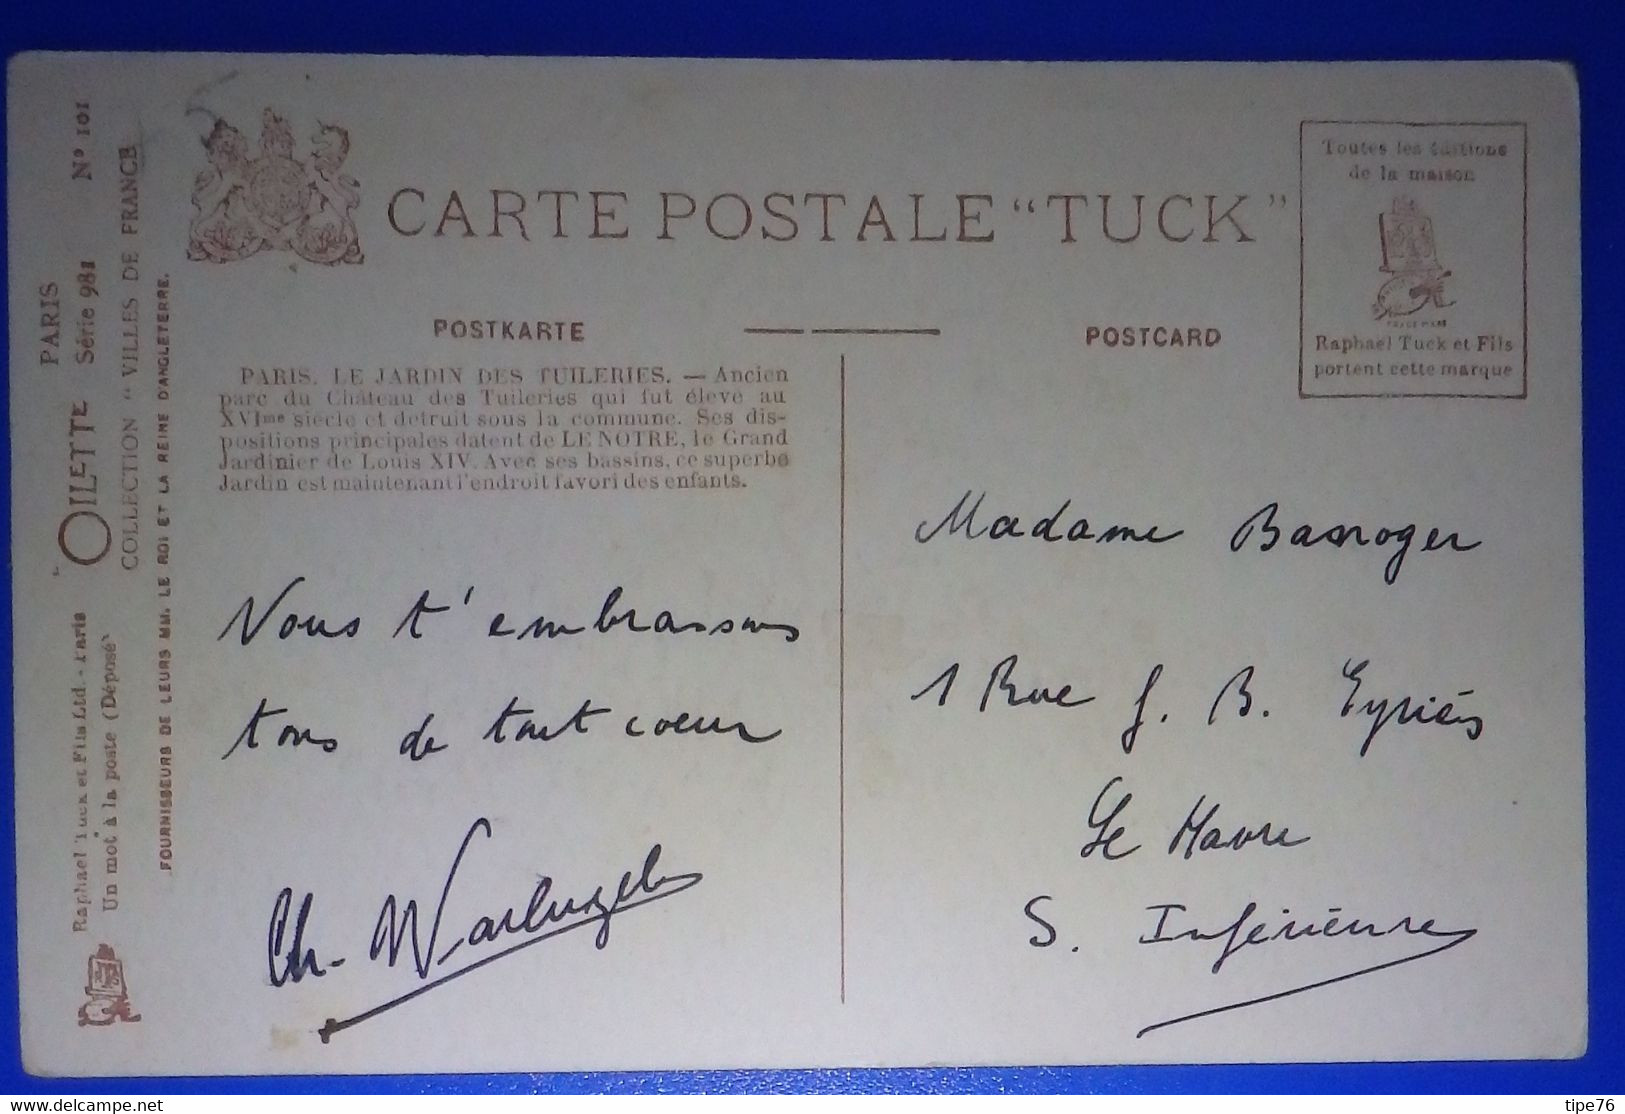 CARTE POSTALE "TUCK"
Toutes les éditions
de la maison
TRADE MARK
Raphael Tuck et Fils
portent cette marque
POSTKARTE
POSTCARD
PARIS. LE JARDIN DES TUILERIES. — Ancien
parc du Château des Tuileries qui fut élevé au
XVIme siècle et détruit sous la commune. Ses dis-
positions principales datent de LE NOTRE, le Grand
Jardinier de Louis XIV. Avec ses bassins, ce superbe
Jardin est maintenant l'endroit favori des enfants.
Nous t'embrassons
tous de tout coeur
Ch.
Madame
1 Rue J. B. Eyriès
Le Havre
S. Inférieure
PARIS
OILETTE Série 981 Nº 101
COLLECTION "VILLES DE FRANCE
Raphael Tuck et Fils Ltd. - Paris
Un mot à la poste (Déposé)
FOURNISSEURS DE LEURS MM. LE ROI ET LA REINE D'ANGLETERRE.
tipe76